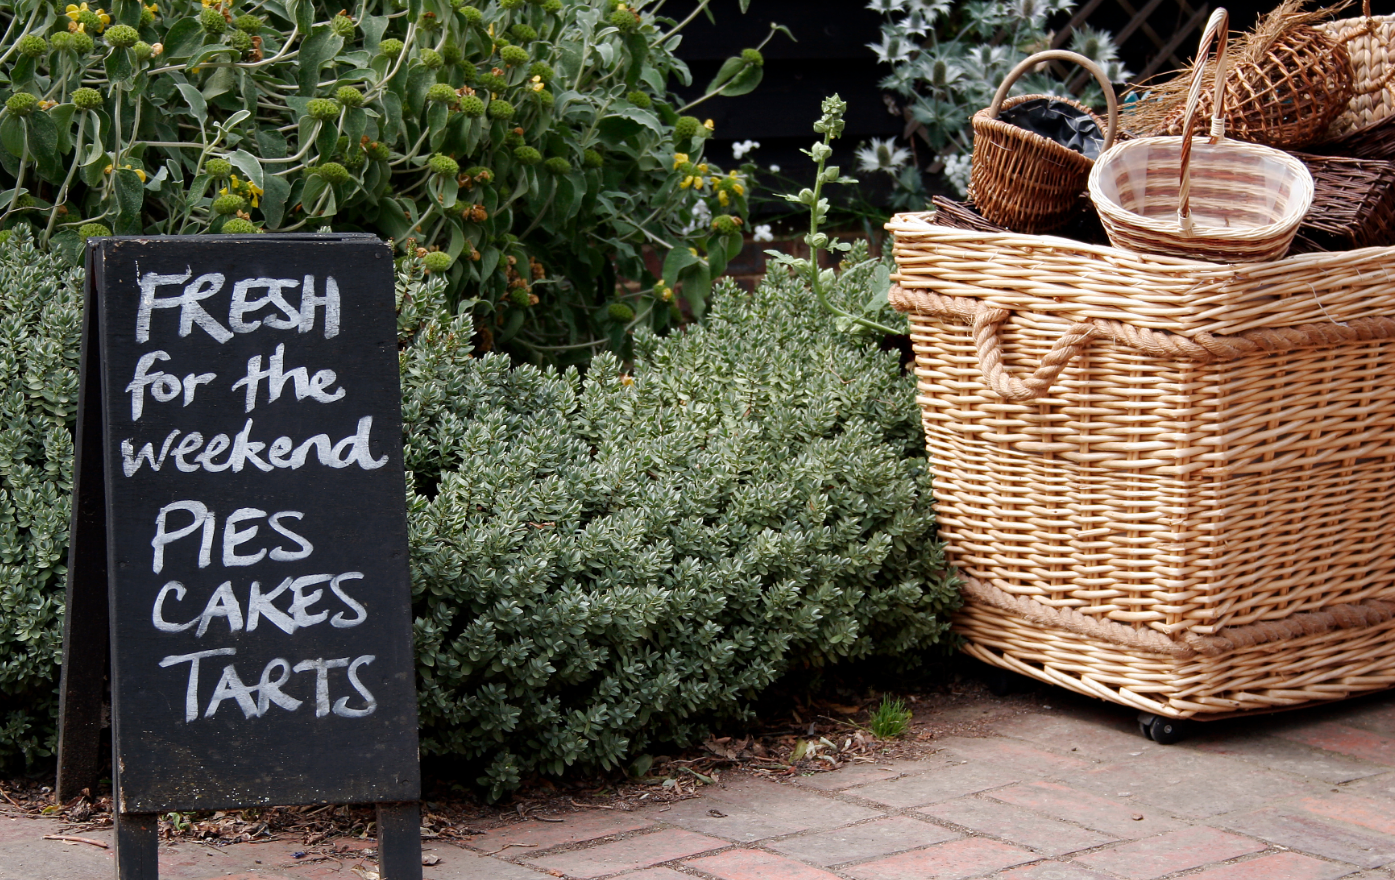 FRESH
for the
weekend
PIES
CAKES
TARTS